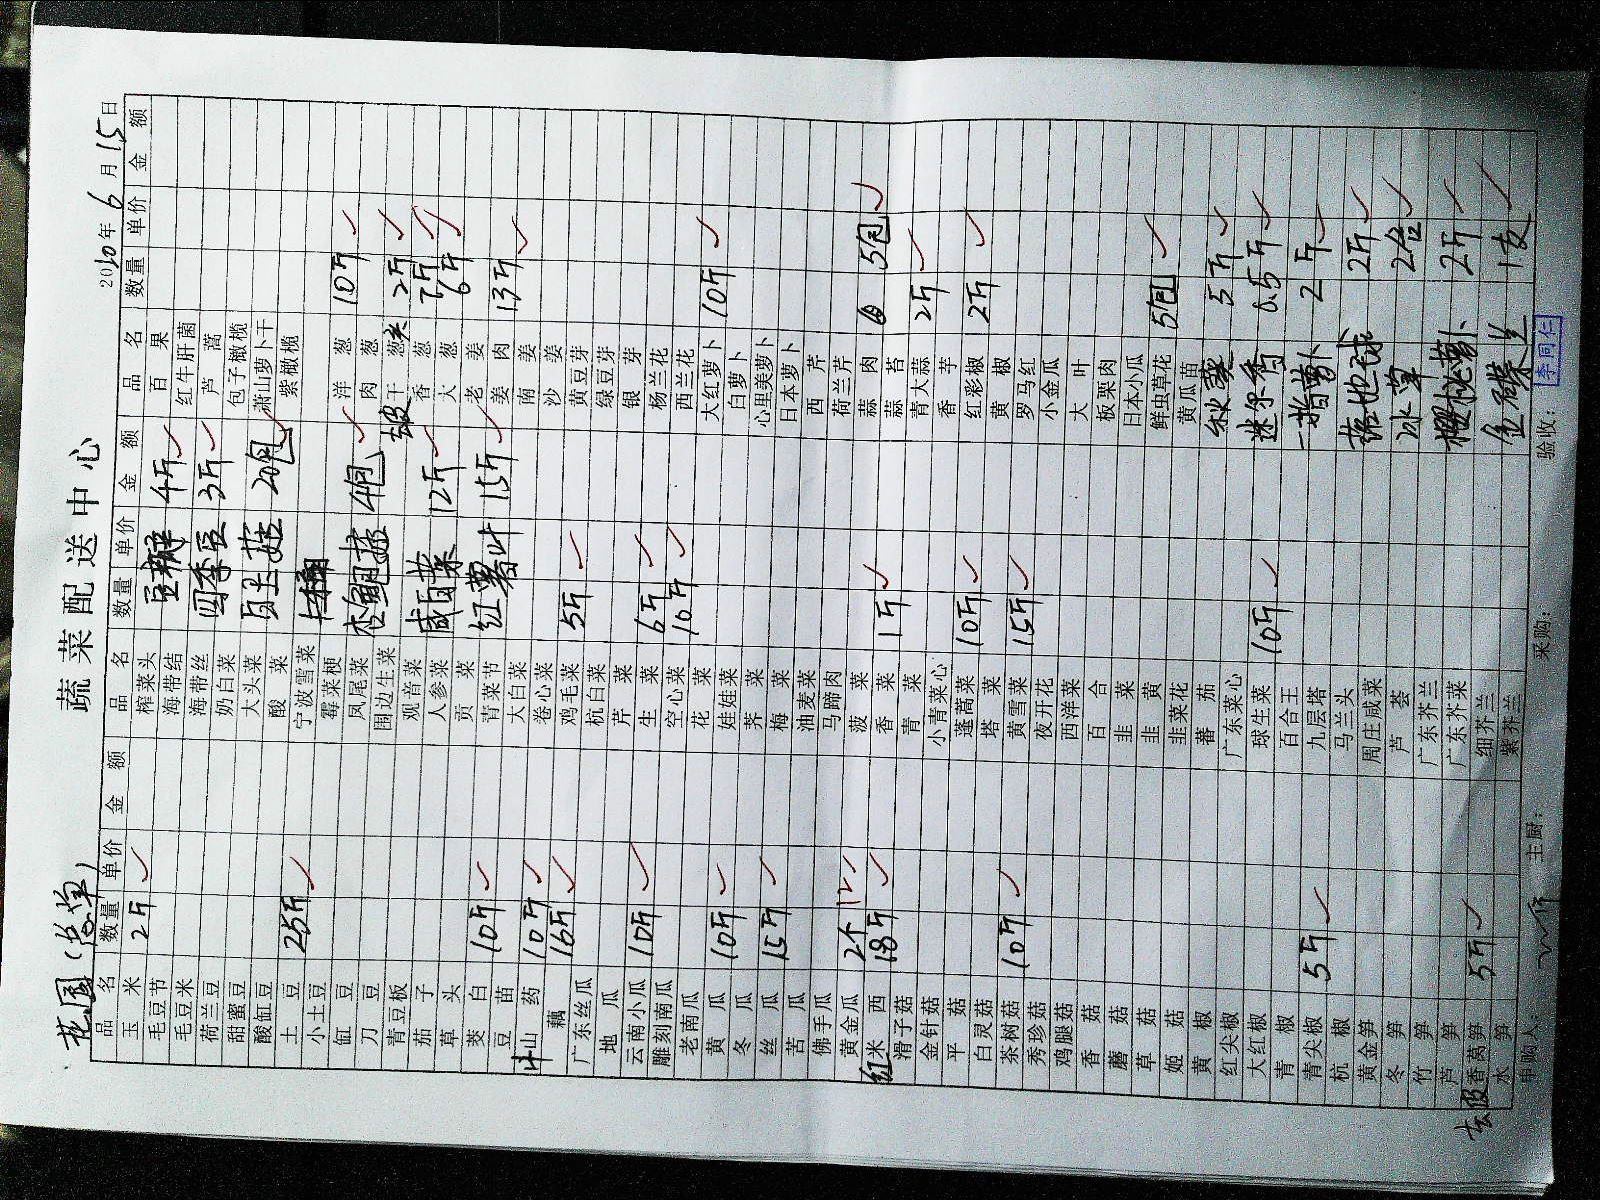 花园(总单)
蔬菜配送中心
2010年6月15日
品名 数量 单价 金额 品名 数量 单价 金额 品名 数量 单价 金额
玉米 2斤 榨菜头 豆瓣 4斤 百果
毛豆节 海带结 红牛肝菌
毛豆米 海带丝 四季豆 3斤 芦蒿
荷兰豆 奶白菜 包子橄榄
甜蜜豆 大头菜 白玉菇 20包 萧山萝卜干
酸缸豆 酸菜 紫橄榄
土豆 25斤 宁波雪菜
小土豆 霉菜梗 洋葱 10斤
缸豆 凤尾菜 杏鲍菇 4包 肉葱
刀豆 围边生菜 去皮 干葱 2斤
青豆板 观音菜 咸菜 12斤 香葱 7斤
茄子 人参菜 大葱 6斤
草头 贡菜 红薯叶 15斤 老姜
茭白 10斤 青菜节 姜肉 13斤
豆苗 大白菜 南姜
山药 10斤 卷心菜 沙姜
藕 16斤 鸡毛菜 5斤 黄豆芽
广东丝瓜 杭白菜 绿豆芽
地瓜 芹菜 银芽
云南小瓜 10斤 生菜 6斤 杨兰花
雕刻南瓜 空心菜 10斤 西兰花
老南瓜 花菜 大红萝卜 10斤
黄瓜 10斤 娃娃菜 白萝卜
冬瓜 荠菜 心里美萝卜
丝瓜 15斤 梅菜 日本萝卜
苦瓜 油麦菜 西芹
佛手瓜 马蹄肉 荷兰芹
黄金瓜 2个 菠菜 蒜肉 5包
红米西 18斤 香菜 1斤 蒜苔
滑子菇 青菜 青大蒜 2斤
金针菇 小青菜心 香芋
平菇 蓬蒿菜 10斤 红彩椒 2斤
白灵菇 塔菜 黄椒
茶树菇 10斤 黄雪菜 15斤 罗马红
秀珍菇 夜开花 小金瓜
鸡腿菇 西洋菜 大叶
香菇 百合 板栗肉
蘑菇 韭菜 日本小瓜
草菇 韭黄 鲜虫草花 5包
姬菇 韭菜花 黄瓜苗
黄椒 蕃茄 秋葵 5斤
红尖椒 广东菜心
大红椒 球生菜 10斤 迷尔香 0.5斤
青椒 百合王
青尖椒 5斤 九层塔 一指萝卜 2斤
杭椒 马兰头
黄金笋 周庄咸菜 落地球 2斤
冬笋 芦荟
竹笋 广东芥兰 冰草 2合
芦笋 广东芥菜 樱桃萝卜 2斤
去皮 香莴笋 5斤 细芥兰
水笋 紫芥兰 金碟兰 1支
申购人: 主厨: 采购: 验收: 李同仁